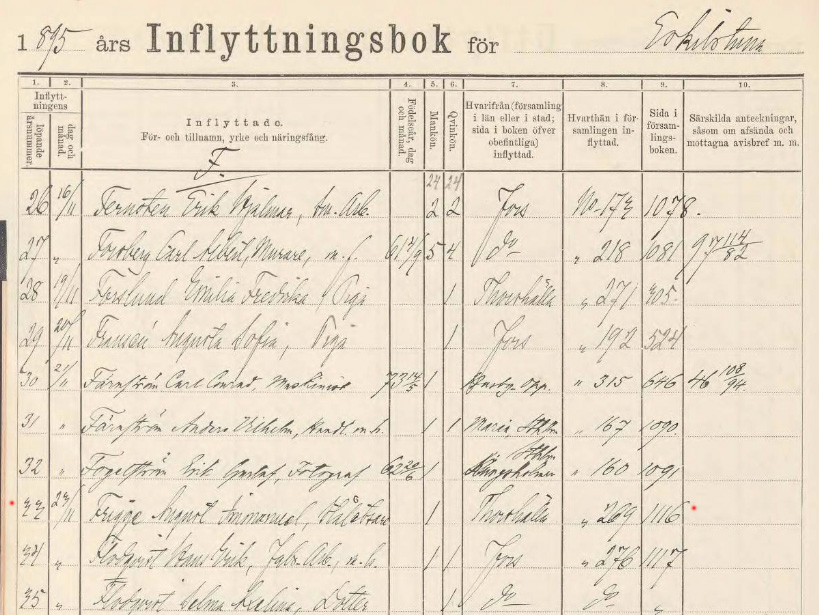 1895 års Inflyttningsbok för Eskilstuna
1. 2. 3. 4. 5. 6. 7. 8. 9. 10.
Inflyttningens
löpande årsnummer.
dag och månad.
Inflyttade.
För- och tillnamn, yrke och näringsfång.
Födelseår, dag och månad.
Mankön.
Qvinkön.
Hvarifrån (församling i län eller i stad; sida i boken öfver obefintliga) inflyttad.
Hvarthän i församlingen inflyttad.
Sida i församlingsboken.
Särskilda anteckningar, såsom om afsända och mottagna avisbref m. m.
F.
24 24
26 16/11 Erik Hjalmar, 2 2 Fors No 173 1078.
27 " Forsberg Carl Albert, Murare, m. f. 61 5 4 do " 218 1081 97 114/82
28 19/11 Forslund Emilia Fredrika, Piga 1 Thorshälla " 271 305.
29 20/11 Fransén Augusta Sofia, Piga 1 Fors " 192 524
30 21/11 Färnström Carl Conrad, Maskinist 73 14/5 1 " 315 646 46 108/94.
31 " Färnström Anders Vilhelm, Handl. m. h. 1 1 Maria, Sthlm " 167 1090.
32 " Fogelström Erik Gustaf, Fotograf 62 20/6 1 Kungsholmen Sthlm " 160 1091
33 23/11 Frigge August Immanuel, 1 Thorshälla " 269 1116
34 " Flodqvist Hans Erik, Fabr. Arb., m. h. 1 1 Fors " 276 1117
35 " Flodqvist Selma Dotter 1 do do "